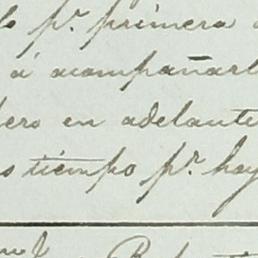 lo pr. primera
á acompañarl
pero en adelante
s tiempo pr. hay